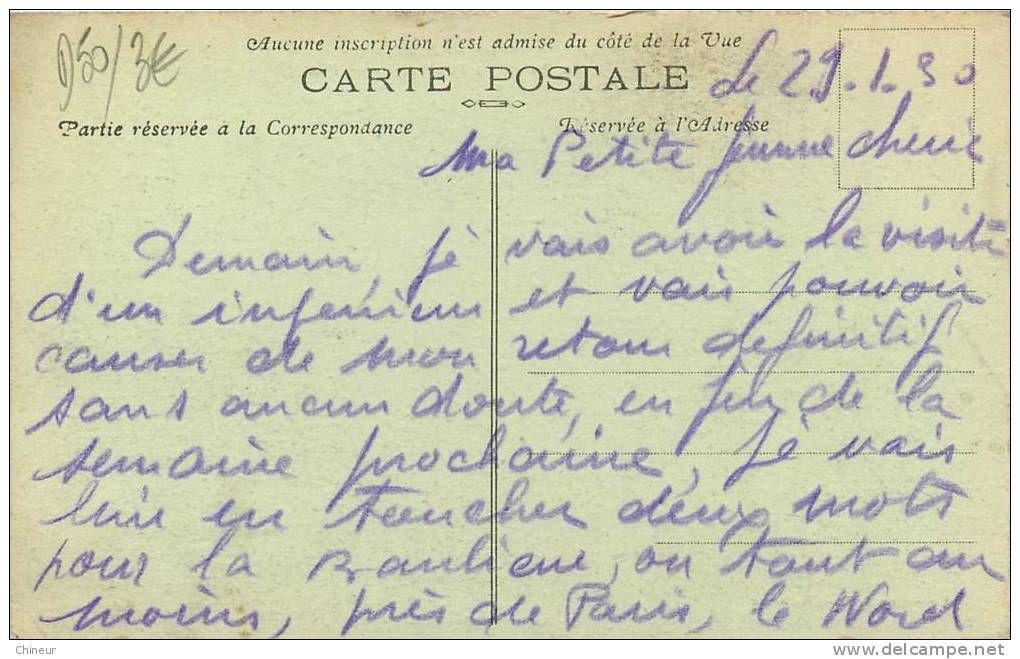 D50/3€
Aucune inscription n'est admise du côté de la Vue
CARTE POSTALE
Partie réservée à la Correspondance
Réservée à l'Adresse
Le 29.1.30
Ma Petite femme cherie
Demain, je vais avoir la visite
d'un ingenieur et vais pouvoir
causer de mon retour definitif
sans aucun doute, en fin de la
semaine prochaine, je vais
lui en toucher deux mots
pour la Banlieue, ou tout au
moins, près de Paris, le Nord
Chineur
www.delcampe.net